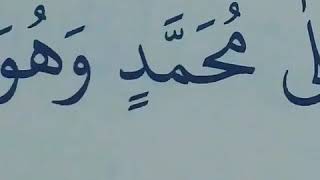 مُحَمَّدٍ وَهُوَ